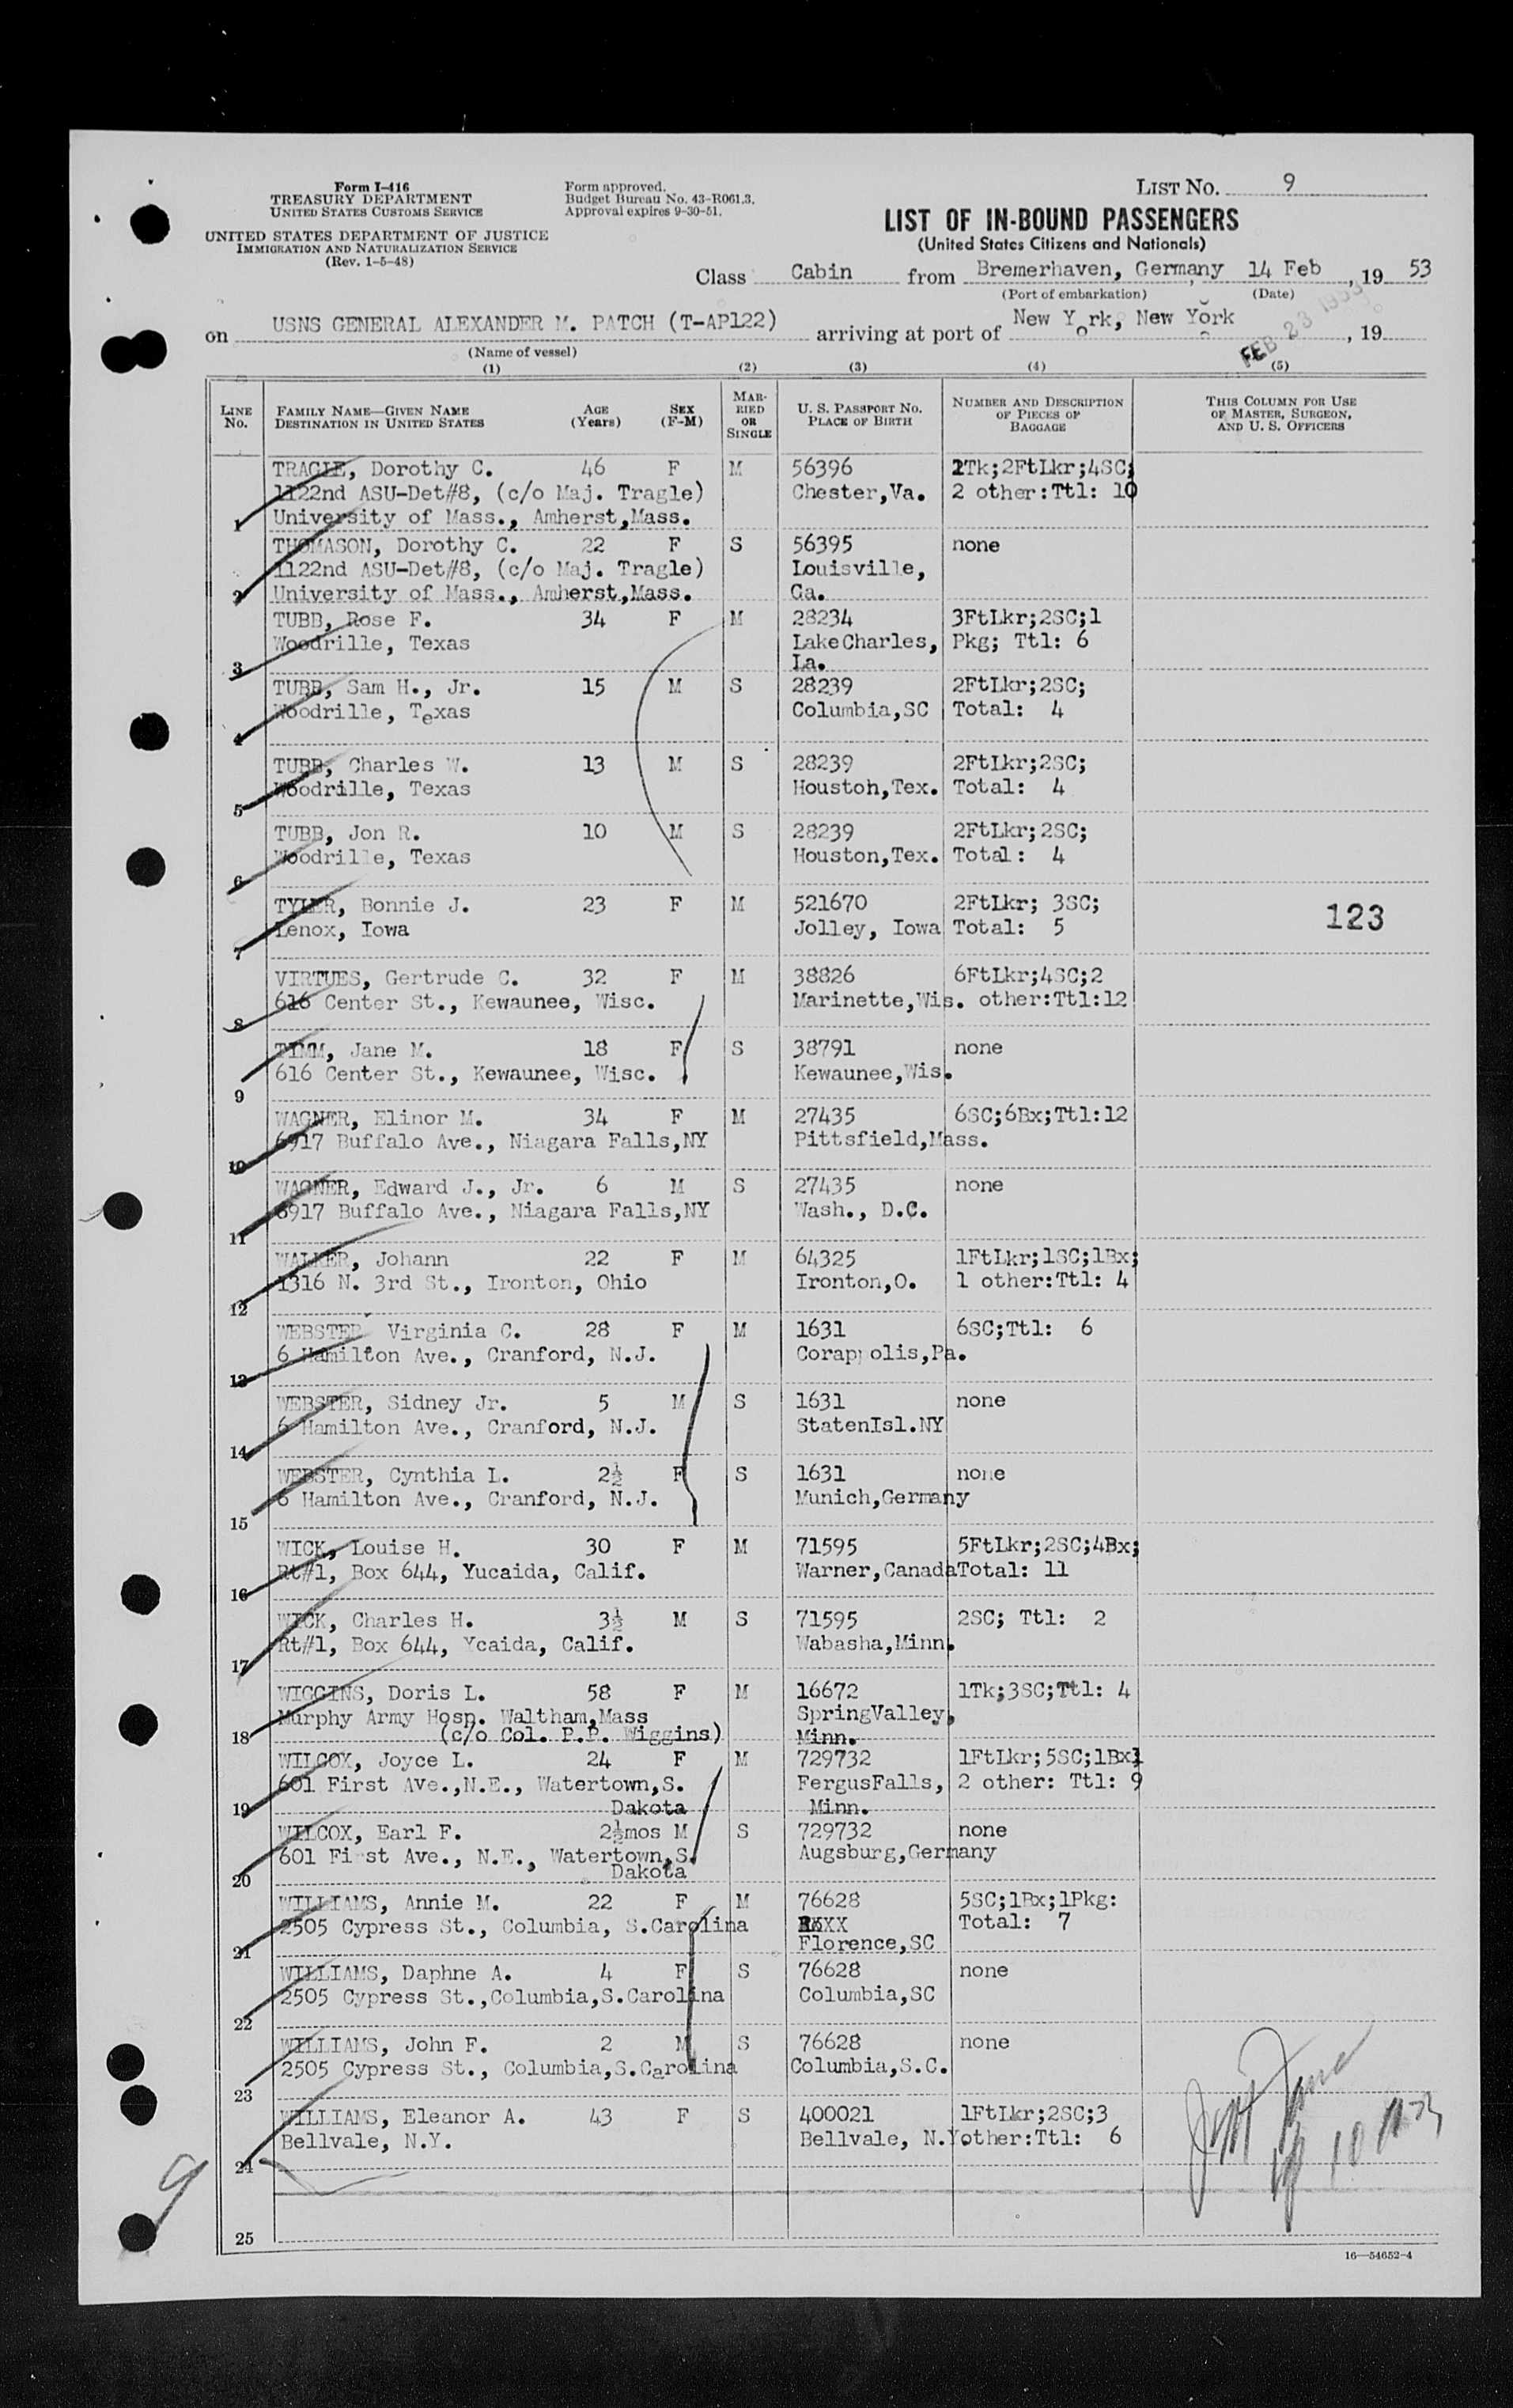 Form I-416
TREASURY DEPARTMENT
UNITED STATES CUSTOMS SERVICE
UNITED STATES DEPARTMENT OF JUSTICE
IMMIGRATION AND NATURALIZATION SERVICE
(Rev. 1-5-48)
Form approved.
Budget Bureau No. 43-R061.3.
Approval expires 9-30-51.
LIST NO. 9
LIST OF IN-BOUND PASSENGERS
(United States Citizens and Nationals)
Class Cabin from Bremerhaven, Germany, 14 Feb, 19 53
(Port of embarkation) (Date)
on USNS GENERAL ALEXANDER M. PATCH (T-AP122) arriving at port of New York, New York, 19
FEB 23 1953
(Name of vessel)
(1) (2) (3) (4) (5)
LINE NO. FAMILY NAME—GIVEN NAME DESTINATION IN UNITED STATES AGE (Years) SEX (F-M) MARRIED OR SINGLE U. S. PASSPORT NO. PLACE OF BIRTH NUMBER AND DESCRIPTION OF PIECES OF BAGGAGE THIS COLUMN FOR USE OF MASTER, SURGEON, AND U. S. OFFICERS
TRAGLE, Dorothy C. 46 F M 56396 1Tk;2FtLkr;4SC;
1122nd ASU-Det#8, (c/o Maj. Tragle) Chester,Va. 2 other:Ttl: 10
1 University of Mass., Amherst,Mass.
THOMASON, Dorothy C. 22 F S 56395 none
1122nd ASU-Det#8, (c/o Maj. Tragle) Louisville,
2 University of Mass., Amherst,Mass. Ga.
TUBB, Rose F. 34 F M 28234 3FtLkr;2SC;1
Woodrille, Texas LakeCharles, Pkg; Ttl: 6
3 La.
TUBB, Sam H., Jr. 15 M S 28239 2FtLkr;2SC;
Woodrille, Texas Columbia,SC Total: 4
4
TUBB, Charles W. 13 M S 28239 2FtLkr;2SC;
Woodrille, Texas Houston,Tex. Total: 4
5
TUBB, Jon R. 10 M S 28239 2FtLkr;2SC;
Woodrille, Texas Houston,Tex. Total: 4
6
TYLER, Bonnie J. 23 F M 521670 2FtLkr; 3SC; 123
Lenox, Iowa Jolley, Iowa Total: 5
7
VIRTUES, Gertrude C. 32 F M 38826 6FtLkr;4SC;2
616 Center St., Kewaunee, Wisc. Marinette,Wis. other:Ttl:12
8
TIMM, Jane M. 18 F S 38791 none
616 Center St., Kewaunee, Wisc. Kewaunee,Wis.
9
WAGNER, Elinor M. 34 F M 27435 6SC;6Bx;Ttl:12
6917 Buffalo Ave., Niagara Falls,NY Pittsfield,Mass.
10
WAGNER, Edward J., Jr. 6 M S 27435 none
6917 Buffalo Ave., Niagara Falls,NY Wash., D.C.
11
WALKER, Johann 22 F M 64325 1FtLkr;1SC;1Bx;
1316 N. 3rd St., Ironton, Ohio Ironton,O. 1 other:Ttl: 4
12
WEBSTER Virginia C. 28 F M 1631 6SC;Ttl: 6
6 Hamilton Ave., Cranford, N.J. Corappolis,Pa.
13
WEBSTER, Sidney Jr. 5 M S 1631 none
6 Hamilton Ave., Cranford, N.J. StatenIsl.NY
14
WEBSTER, Cynthia L. 2½ F S 1631 none
6 Hamilton Ave., Cranford, N.J. Munich,Germany
15
WICK, Louise H. 30 F M 71595 5FtLkr;2SC;4Bx;
Rt#1, Box 644, Yucaida, Calif. Warner,Canada Total: 11
16
WICK, Charles H. 3½ M S 71595 2SC; Ttl: 2
Rt#1, Box 644, Ycaida, Calif. Wabasha,Minn.
17
WIGGINS, Doris L. 58 F M 16672 1Tk;3SC;Ttl: 4
Murphy Army Hosp. Waltham,Mass SpringValley,
18 (c/o Col. P.P. Wiggins) Minn.
WILCOX, Joyce L. 24 F M 729732 1FtLkr;5SC;1Bx;
601 First Ave.,N.E., Watertown,S. FergusFalls, 2 other: Ttl: 9
19 Dakota Minn.
WILCOX, Earl F. 2½mos M S 729732 none
601 First Ave., N.E., Watertown,S. Augsburg,Germany
20 Dakota
WILLIAMS, Annie M. 22 F M 76628 5SC;1Bx;1Pkg:
2505 Cypress St., Columbia, S.Carolina XXXX Total: 7
21 Florence,SC
WILLIAMS, Daphne A. 4 F S 76628 none
2505 Cypress St.,Columbia,S.Carolina Columbia,SC
22
WILLIAMS, John F. 2 M S 76628 none
2505 Cypress St., Columbia,S.Carolina Columbia,S.C.
23
WILLIAMS, Eleanor A. 43 F S 400021 1FtLkr;2SC;3
Bellvale, N.Y. Bellvale, N.Y. other:Ttl: 6
24
25
9
16—54652-4